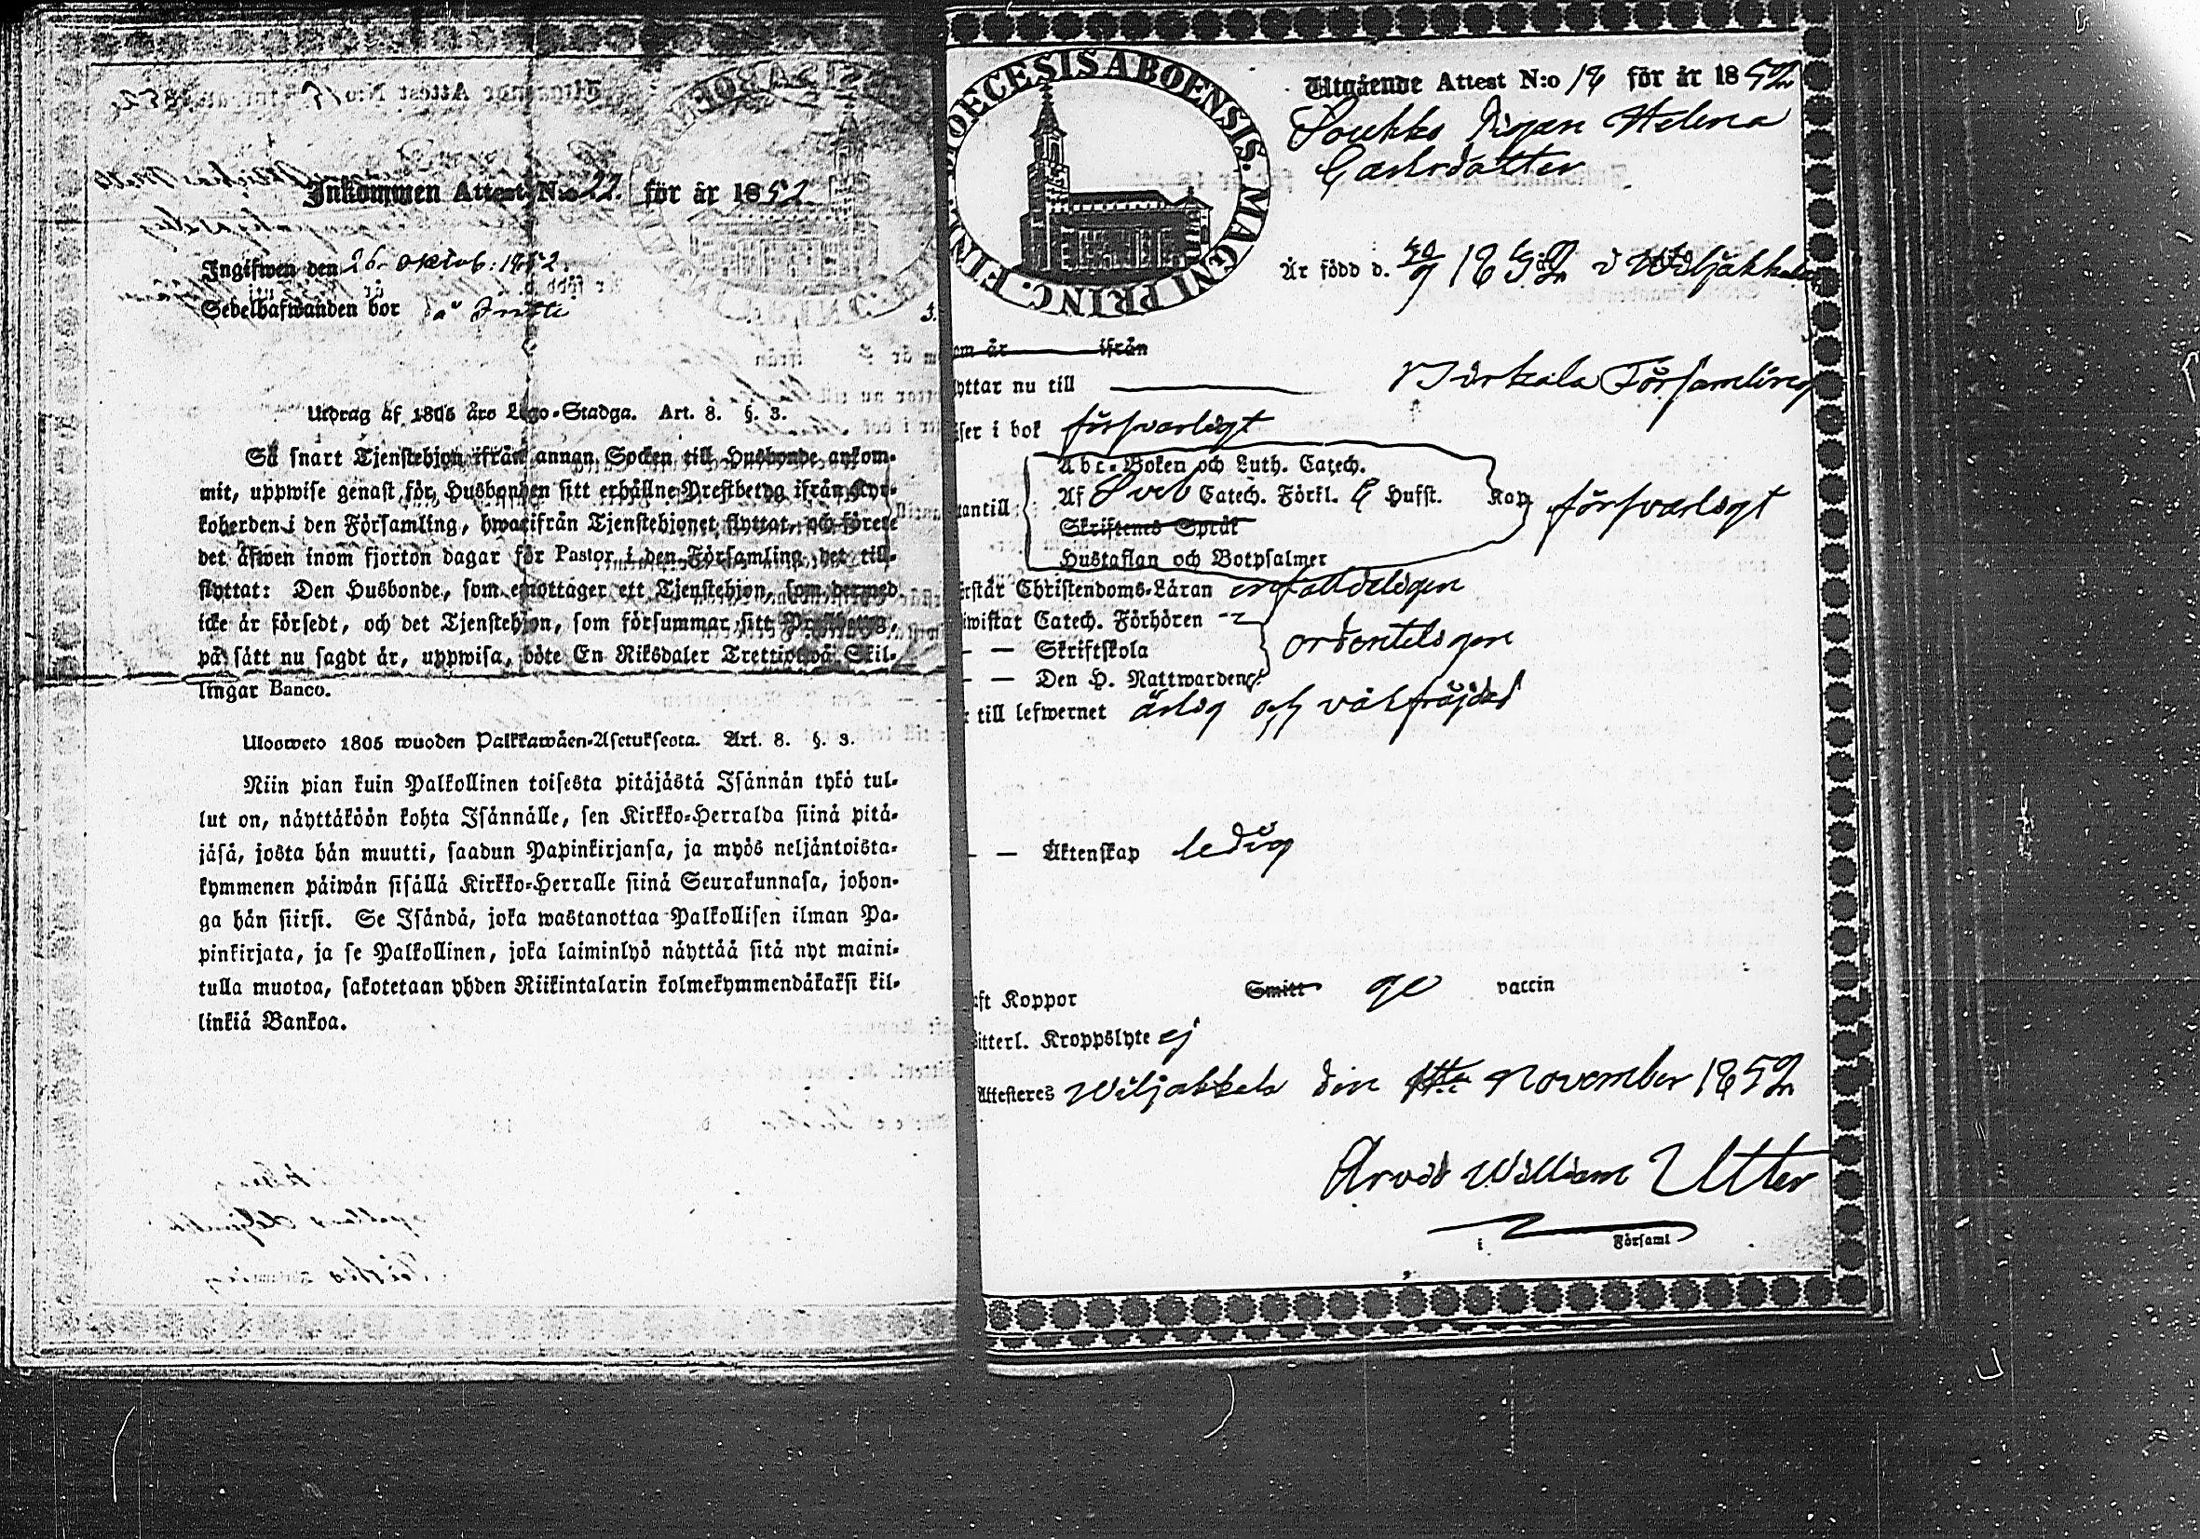 Inkommen Attest N:o 22. för år 1852.
Ingifwen den 26. Oktob: 1852.
Sedelhafwanden bor på
Utdrag af 1805 års Lego-Stadga. Art. 8. §. 3.
Så snart Tjenstehjon ifrån annan Socken till Husbonde ankom-
mit, uppwise genast för Husbonden sitt erhållne Prestbetyg ifrån Kyr-
koherden i den Församling, hwarifrån Tjenstehjonet flyttat, och förete
det äfwen inom fjorton dagar för Pastor i den Församling det till-
flyttat: Den Husbonde, som emottager ett Tjenstehjon, som dermed
icke är försedt, och det Tjenstehjon, som försummar sitt Prestbetyg,
på sätt nu sagdt är, uppwisa, böte En Riksdaler Trettiotwå Skil-
lingar Banco.
Uloosweto 1805 wuoden Palkkawäen-Asetuksesta. Art. 8. §. 3.
Niin pian kuin Palkollinen toisesta pitäjästä Isännän tykö tul-
lut on, näyttäköön kohta Isännälle, sen Kirkko-Herralda siinä pitä-
jäsä, josta hän muutti, saadun Papinkirjansa, ja myös neljäntoista-
kymmenen päiwän sisällä Kirkko-Herralle siinä Seurakunnasa, johon-
ga hän siirsi. Se Isändä, joka wastanottaa Palkollisen ilman Pa-
pinkirjata, ja se Palkollinen, joka laiminlyö näyttää sitä nyt maini-
tulla muotoa, sakotetaan yhden Riikintalarin kolmekymmendäkaksi kil-
linkiä Bankoa.
DIOECESIS ABOENSIS. MAGNI PRINC. FINL.
Utgående Attest N:o 18 för år 1852
Soukko Pigan Helena
Carlsdotter
Är född d. 1832 i Wiljakkala
om år ifrån
lyttar nu till Birkala Församling
äser i bok försvarligt
Abc-Boken och Luth. Catech.
Af Sveb Catech. Förkl. & Husst. Kop försvarligt
utantill
Skriftenes Språk
Hustaflan och Botpsalmer
rstår Christendoms-Läran enfalldeligen
iwistat Catech. Förhören
— — Skriftskola ordenteligen
— — Den H. Nattwarden
r till lefwernet ärlig och välfräjdad
— — Äktenskap ledig
ft Koppor Smitt ge vaccin
itterl. Kroppslyte ej
Attesteres Wiljakkala den November 1852
Arvid William Utter
i Församl